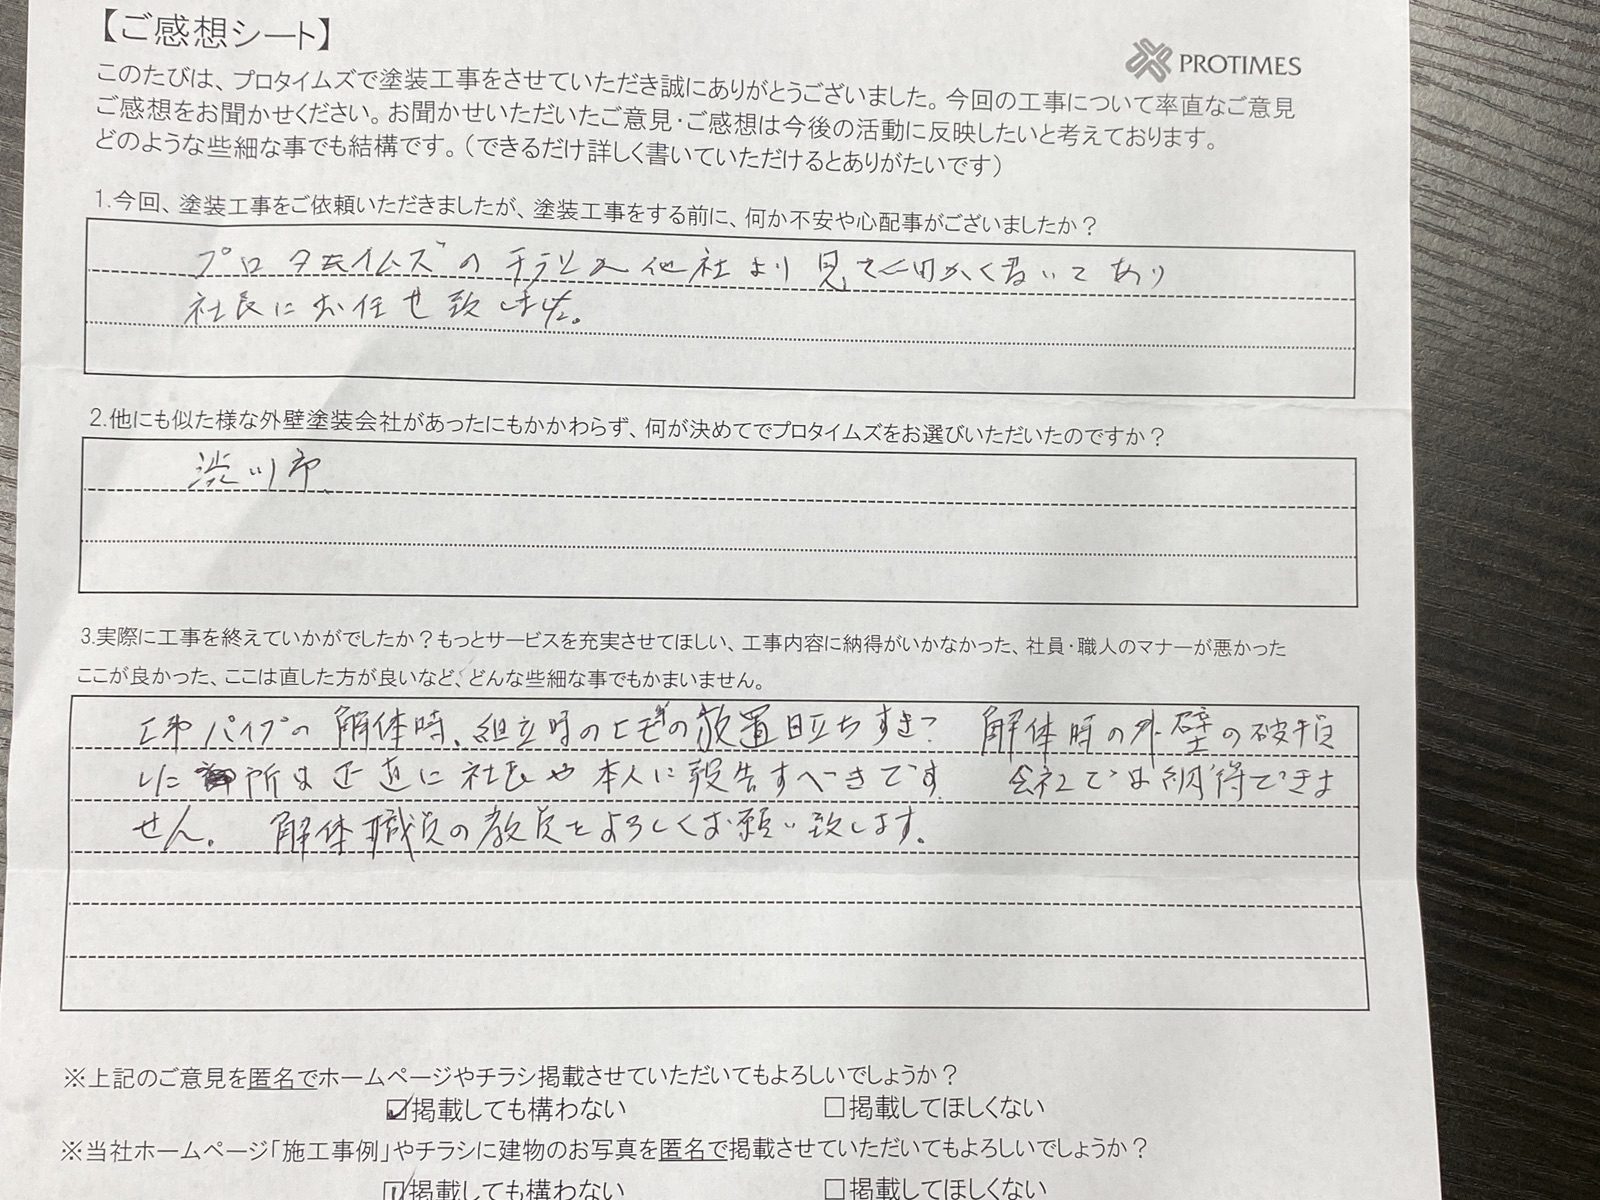 【ご感想シート】
PROTIMES
このたびは、プロタイムズで塗装工事をさせていただき誠にありがとうございました。今回の工事について率直なご意見
ご感想をお聞かせください。お聞かせいただいたご意見・ご感想は今後の活動に反映したいと考えております。
どのような些細な事でも結構です。（できるだけ詳しく書いていただけるとありがたいです）
1.今回、塗装工事をご依頼いただきましたが、塗装工事をする前に、何か不安や心配事がございましたか？
プロタイムズのチラシ 他社より見て細かく書いてあり
社長にお任せ致しました。
2.他にも似た様な外壁塗装会社があったにもかかわらず、何が決めてでプロタイムズをお選びいただいたのですか？
渋川市
3.実際に工事を終えていかがでしたか？もっとサービスを充実させてほしい、工事内容に納得がいかなかった、社員・職人のマナーが悪かった
ここが良かった、ここは直した方が良いなど、どんな些細な事でもかまいません。
工事パイプの解体時、組立時の の放置目立ちすぎ？ 解体時の外壁の破損
した 所は正直に社長や本人に報告すべきです 会社では納得できま
せん。 解体職員の教員をよろしくお願い致します。
※上記のご意見を匿名でホームページやチラシ掲載させていただいてもよろしいでしょうか？
☑掲載しても構わない □掲載してほしくない
※当社ホームページ「施工事例」やチラシに建物のお写真を匿名で掲載させていただいてもよろしいでしょうか？
☑掲載しても構わない □掲載してほしくない